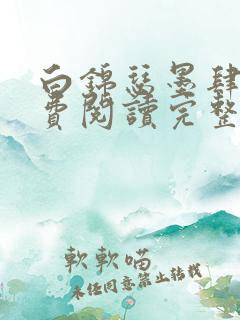 白錦瑟墨肆
費閱讀完整
軟軟喵
未经同意禁止转载